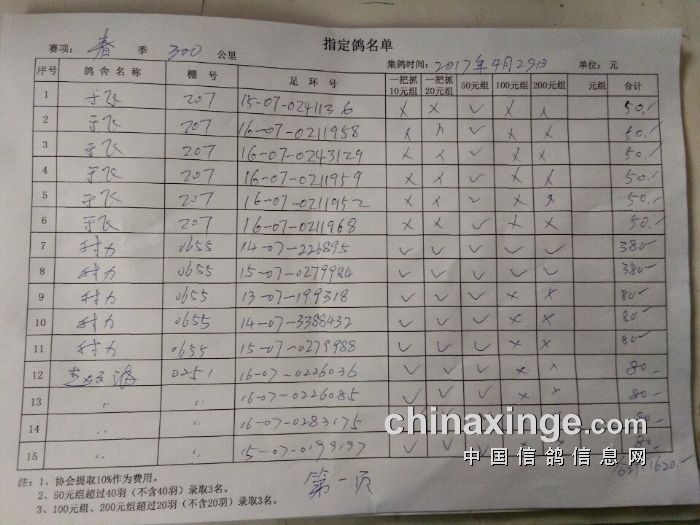 指定鸽名单
赛项: 春 季 300 公里 集鸽时间: 2017年4月29日 单位: 元
序号 鸽舍名称 棚号 足环号 一把抓10元组 一把抓20元组 50元组 100元组 200元组 元组 合计
1 于飞 207 15-07-0241136 × × ✓ × × 50.-
2 于飞 207 16-07-0211958 × × ✓ × × 50.-
3 于飞 207 16-07-0243129 × × ✓ × × 50.-
4 于飞 207 16-07-0211959 × × ✓ × × 50.-
5 于飞 207 16-07-0211952 × × ✓ × × 50.-
6 于飞 207 16-07-0211968 × × ✓ × × 50.-
7 特力 0655 14-07-226895 ✓ ✓ ✓ ✓ ✓ 380-
8 特力 0655 15-07-0279984 ✓ ✓ ✓ ✓ ✓ 380-
9 特力 0655 13-07-199318 ✓ ✓ ✓ × × 80-
10 特力 0655 14-07-3388432 ✓ ✓ ✓ × × 80-
11 特力 0655 15-07-0279988 ✓ ✓ ✓ × × 80-
12 0251 16-07-0226036 ✓ ✓ ✓ × × 80-
13 〃 〃 16-07-0226085 ✓ ✓ ✓ × × 80-
14 〃 〃 16-07-0283175 ✓ ✓ ✓ 80-
15 〃 〃 15-07-0199197 ✓ ✓ ✓ 80-
chinaxinge.com
中国信鸽信息网
1620.-
注: 1、协会提取10%作为费用。
2、50元组超过40羽(不含40羽)录取3名。
3、100元组、200元组超过20羽(不含20羽)录取3名。
第一页